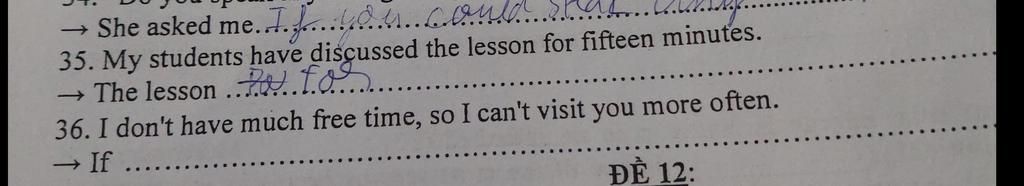 → She asked me..If you could
35. My students have discussed the lesson for fifteen minutes.
→ The lesson ....................
36. I don't have much free time, so I can't visit you more often.
→ If ....................
ĐỀ 12: